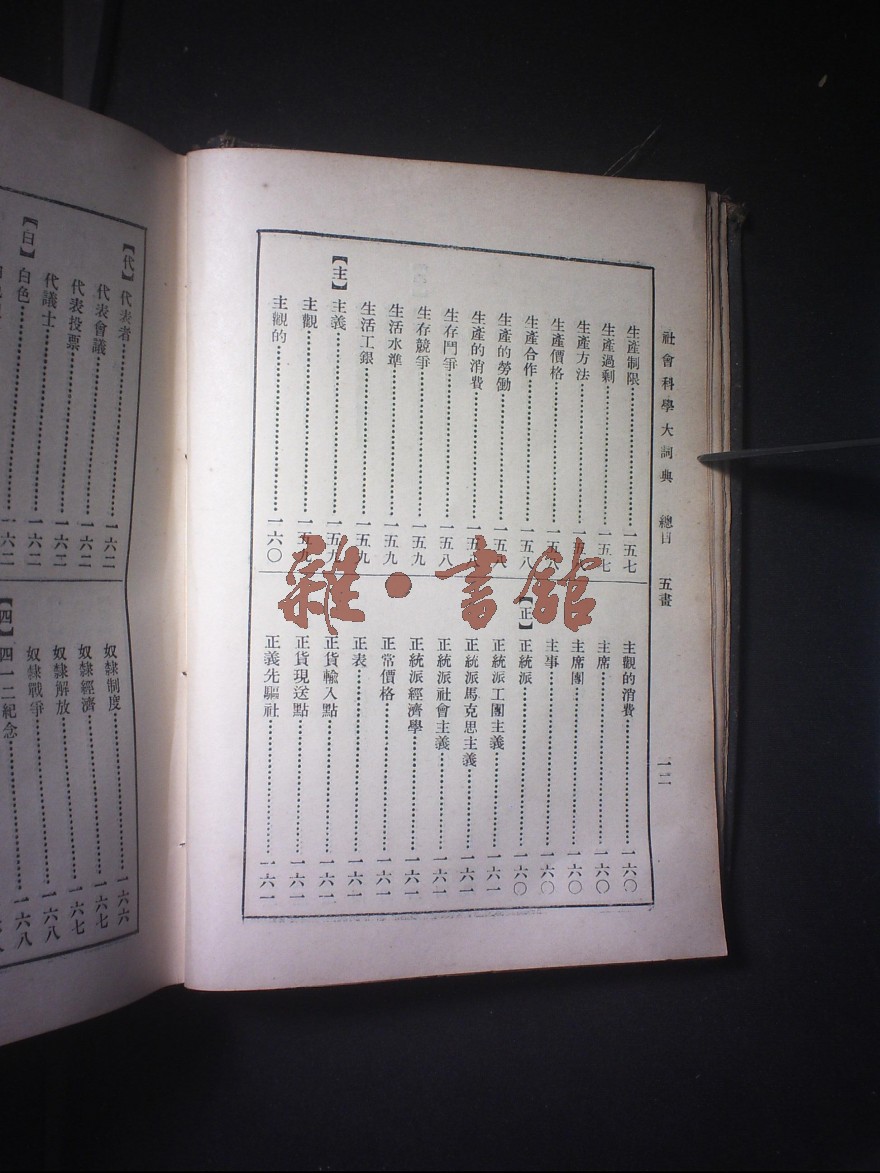 社會科學大詞典 總目 五畫 一二
生產制限 一五七
生產過剩 一五七
生產方法 一五
生產價格 一五八
生產合作 一五八
生產的勞働 一五八
生產的消費 一五八
生存鬥爭 一五八
生存競爭 一五九
生活水準 一五九
生活工銀 一五九
【主】主義 一五九
主觀 一五九
主觀的 一六〇
主觀的消費 一六〇
主席 一六〇
主席團 一六〇
主事 一六〇
【正】正統派 一六〇
正統派工團主義 一六一
正統派馬克思主義 一六一
正統派社會主義 一六一
正統派經濟學 一六一
正常價格 一六一
正表 一六一
正貨輸入點 一六一
正貨現送點 一六一
正義先驅社 一六一
【代】代表者 一六二
代表會議 一六二
代表投票 一六二
代議士 一六二
【白】白色 一六二
奴隸制度 一六六
奴隸經濟 一六七
奴隸解放 一六七
奴隸戰爭 一六八
【四】四一二紀念 一六八
雜·書館